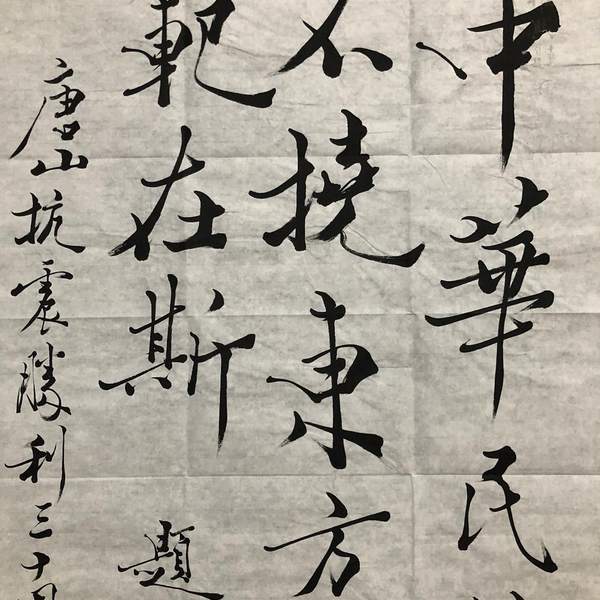 中華民
不撓東方
範在斯題
唐山抗震勝利三十